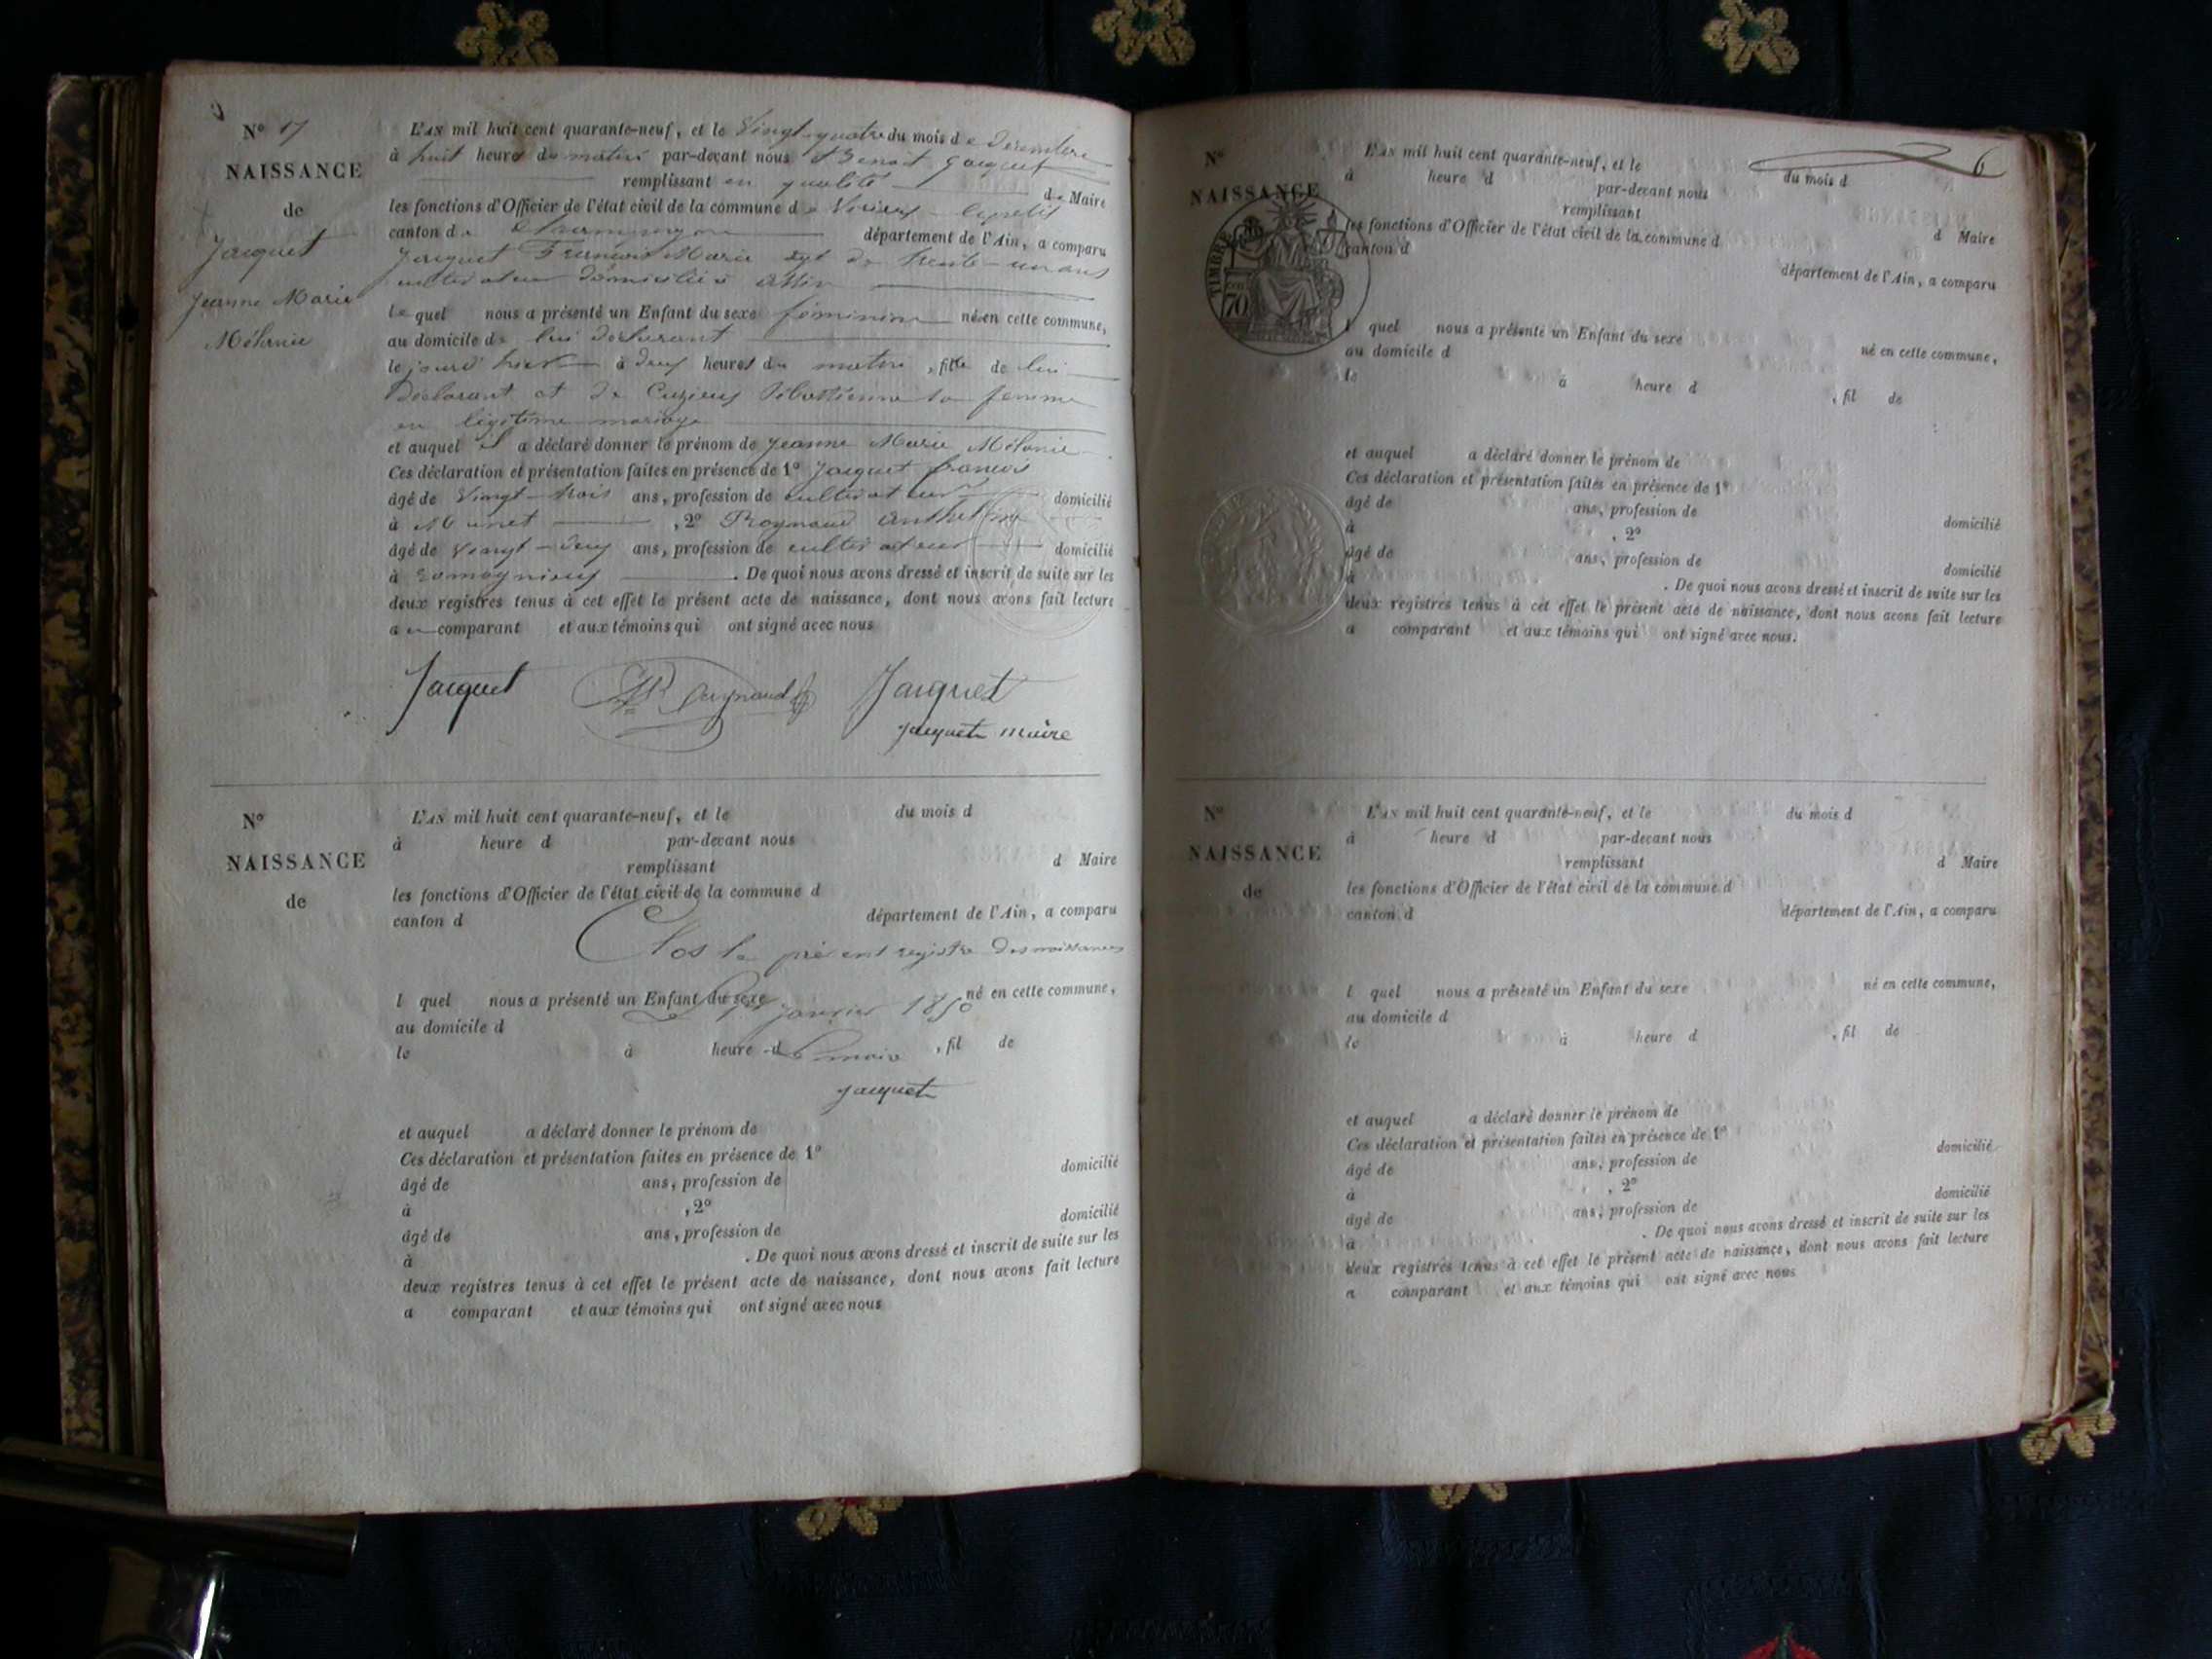 N° 17
NAISSANCE
de
Jacquet
Jeanne Marie
Mélanie
L'AN mil huit cent quarante-neuf, et le Vingt-quatre du mois de Décembre
à huit heures du matin par-devant nous Benoit Jacquet
remplissant en qualité de Maire
les fonctions d'Officier de l'état civil de la commune de
canton de département de l'Ain, a comparu
Jacquet François Marie agé de trente-un ans
cultivateur domicilié à
lequel nous a présenté un Enfant du sexe féminin né en cette commune,
au domicile de lui déclarant
le jour d'hier à deux heures du matin, fille de lui
Déclarant et de Cuzieux Sébastienne sa femme
en légitime mariage
et auquel il a déclaré donner le prénom de Jeanne Marie Mélanie
Ces déclaration et présentation faites en présence de 1° Jacquet francois
âgé de Vingt-trois ans, profession de cultivateur domicilié
à Munet , 2° Reynaud Anthelme
âgé de Vingt-deux ans, profession de cultivateur domicilié
à Romagnieux . De quoi nous avons dressé et inscrit de suite sur les
deux registres tenus à cet effet le présent acte de naissance, dont nous avons fait lecture
au comparant et aux témoins qui ont signé avec nous
Jacquet Reynaud Jacquet
Jacquet maire
N°
NAISSANCE
de
L'AN mil huit cent quarante-neuf, et le du mois d
à heure d par-devant nous
remplissant d Maire
les fonctions d'Officier de l'état civil de la commune d
canton d département de l'Ain, a comparu
Clos le présent registre des naissances
l quel nous a présenté un Enfant du sexe né en cette commune,
Le 1er janvier 1850
au domicile d
le à heure d , fil de
Le maire
Jacquet
et auquel a déclaré donner le prénom de
Ces déclaration et présentation faites en présence de 1°
âgé de ans, profession de domicilié
à , 2°
âgé de ans, profession de domicilié
à . De quoi nous avons dressé et inscrit de suite sur les
deux registres tenus à cet effet le présent acte de naissance, dont nous avons fait lecture
a comparant et aux témoins qui ont signé avec nous
6
N°
NAISSANCE
TIMBRE
70
L'AN mil huit cent quarante-neuf, et le du mois d
à heure d par-devant nous
remplissant d Maire
les fonctions d'Officier de l'état civil de la commune d
canton d département de l'Ain, a comparu
l quel nous a présenté un Enfant du sexe né en cette commune,
au domicile d
le à heure d , fil de
et auquel a déclaré donner le prénom de
Ces déclaration et présentation faites en présence de 1°
âgé de ans, profession de domicilié
à , 2°
âgé de ans, profession de domicilié
à . De quoi nous avons dressé et inscrit de suite sur les
deux registres tenus à cet effet le présent acte de naissance, dont nous avons fait lecture
a comparant et aux témoins qui ont signé avec nous.
N°
NAISSANCE
de
L'AN mil huit cent quarante-neuf, et le du mois d
à heure d par-devant nous
remplissant d Maire
les fonctions d'Officier de l'état civil de la commune d
canton d département de l'Ain, a comparu
l quel nous a présenté un Enfant du sexe né en cette commune,
au domicile d
le à heure d , fil de
et auquel a déclaré donner le prénom de
Ces déclaration et présentation faites en présence de 1°
âgé de ans, profession de domicilié
à , 2°
âgé de ans, profession de domicilié
à . De quoi nous avons dressé et inscrit de suite sur les
deux registres tenus à cet effet le présent acte de naissance, dont nous avons fait lecture
a comparant et aux témoins qui ont signé avec nous